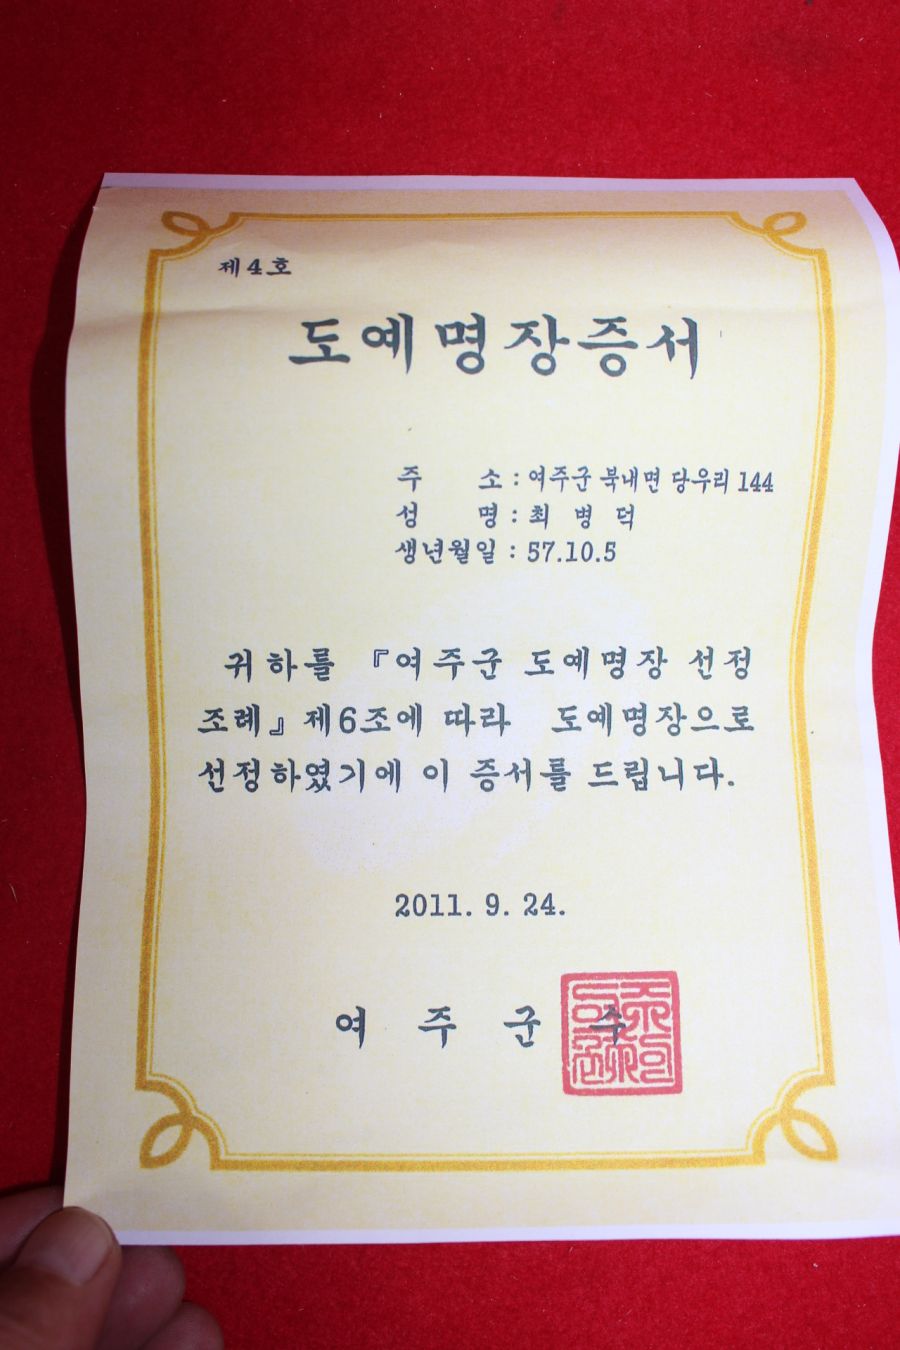 제4호
도예명장증서
주 소 : 여주군 북내면 당우리 144
성 명 : 최 병 덕
생년월일 : 57.10.5
귀하를 『여주군 도예명장 선정
조례』제6조에 따라 도예명장으로
선정하였기에 이 증서를 드립니다.
2011. 9. 24.
여 주 군 수